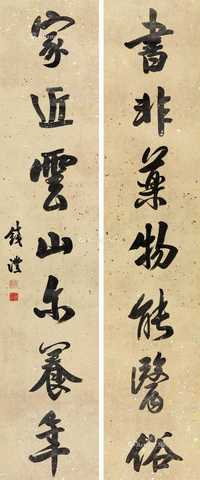 書非藥物能醫俗
家近雲山尔養年
錢灃